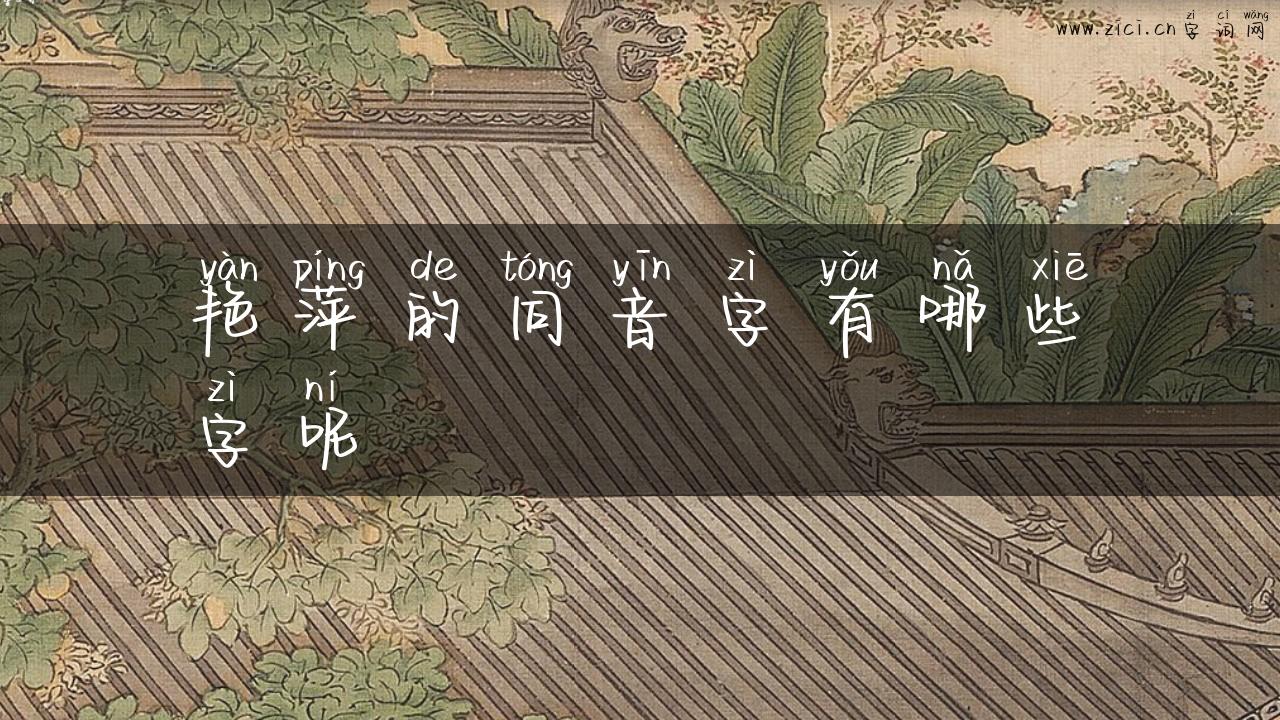 zì cí wǎng
www.zici.cn 字 词 网
yàn píng de tóng yīn zì yǒu nǎ xiē
艳 萍 的 同 音 字 有 哪 些
zì ní
字 呢